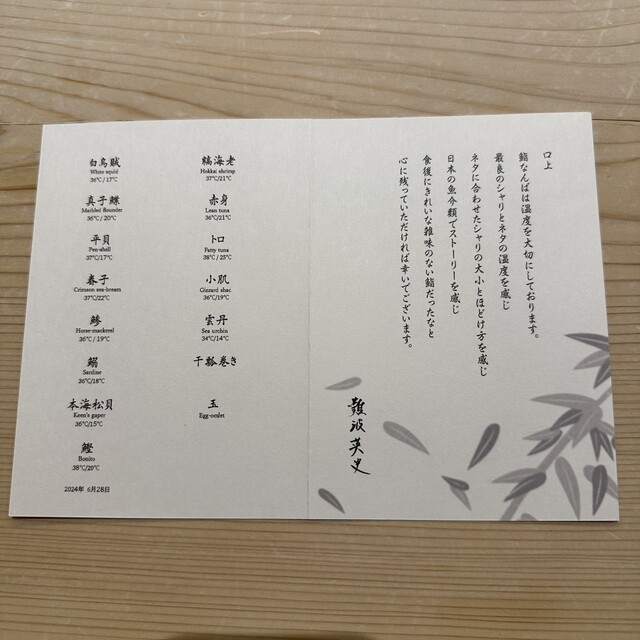 白烏賊
White squid
36℃/17℃
真子鰈
Marbled flounder
36℃/20℃
平貝
Pen-shell
37℃/17℃
春子
Crimson sea-bream
37℃/22℃
鯵
Horse-mackerel
36℃/19℃
鰯
Sardine
36℃/18℃
本海松貝
Keen's gaper
36℃/15℃
鰹
Bonito
38℃/20℃
2024年 6月28日
縞海老
Hokkai shrimp
37℃/21℃
赤身
Lean tuna
36℃/21℃
トロ
Fatty tuna
38℃/25℃
小肌
Gizzard shac
36℃/19℃
雲丹
Sea urchin
34℃/14℃
干瓢巻き
玉
Egg-omlet
口上
鮨なんばは温度を大切にしております。
最良のシャリとネタの温度を感じ
ネタに合わせたシャリの大小とほどけ方を感じ
日本の魚介類でストーリーを感じ
食後にきれいな雑味のない鮨だったなと
心に残っていただければ幸いでございます。
難波英史